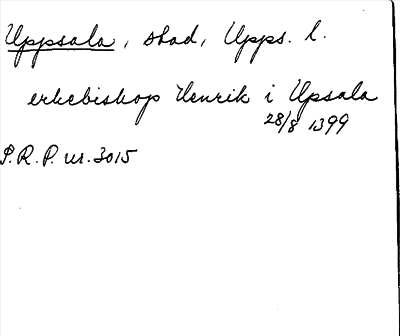 Uppsala, stad, Upps. l.
erkebiskop Henrik i Upsala
28/8 1399
S.R.P. nr. 3015